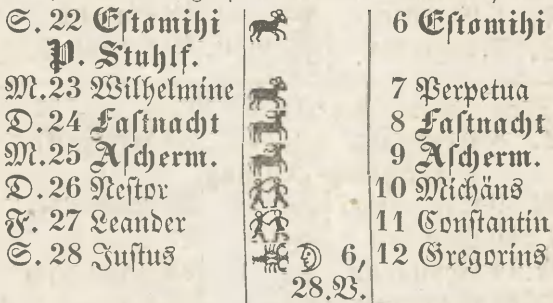 S. 22 Eſtomihi 6 Eſtomihi
P. Stuhlf.
M. 23 Wilhelmine 7 Perpetua
D. 24 Faſtnacht 8 Faſtnacht
M. 25 Aſcherm. 9 Aſcherm.
D. 26 Neſtor 10 Michäus
F. 27 Leander 11 Conſtantin
S. 28 Juſtus 6, 12 Gregorius
28.V.